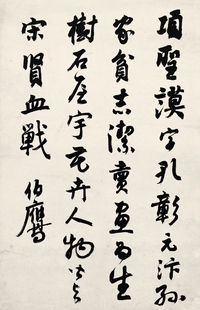 項聖謨字孔彰元汴孫
家貧志潔賣畫為生
樹石屋宇花卉人物皆與
宋賢血戰
伯鷹